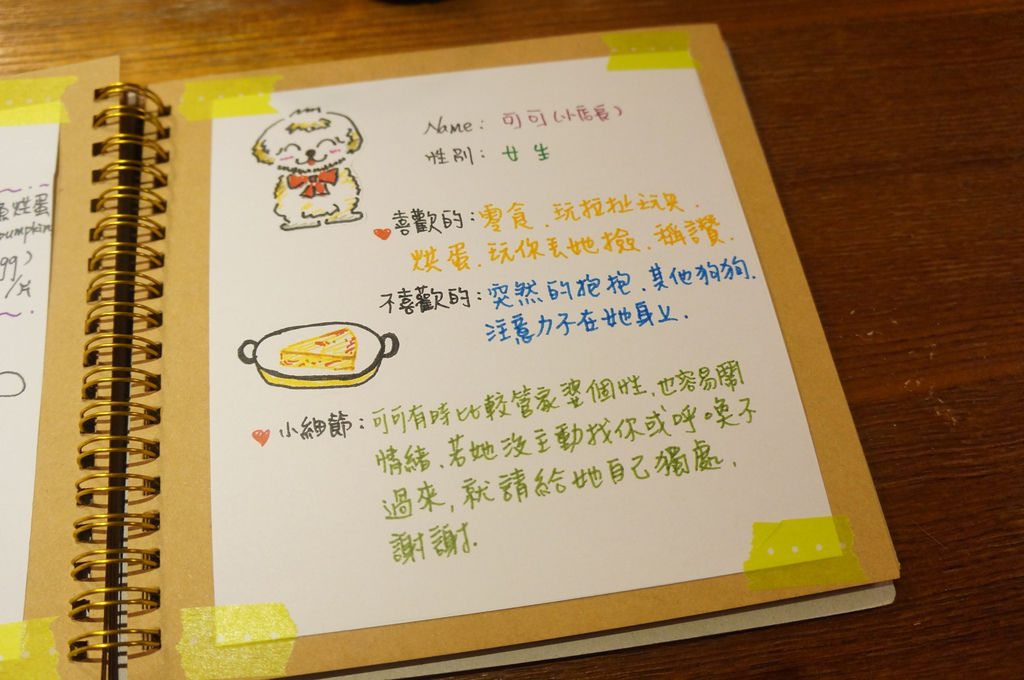 烘蛋
pumpkin
99)
/片
Name: 可可(小店長)
性別: 女生
喜歡的: 零食、玩拉扯玩具、
烘蛋、玩你丟她撿、稱讚.
不喜歡的: 突然的抱抱、其他狗狗、
注意力不在她身上.
小細節: 可可有時比較管家婆個性、也容易鬧
情緒、若她沒主動找你或呼喚不
過來,就請給她自己獨處、
謝謝.